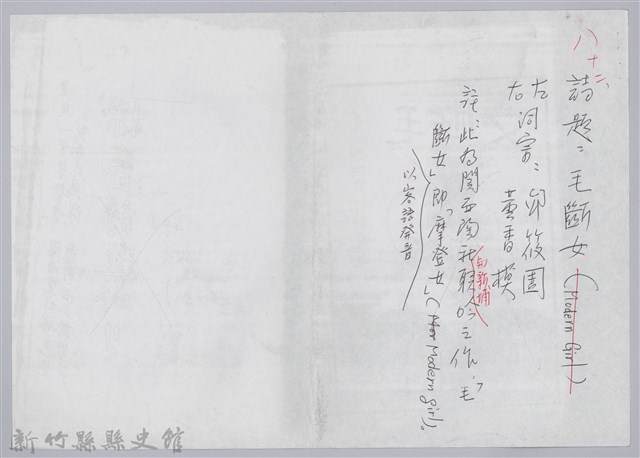 八十二、
詩題：毛斷女(Modern Girl)
左詞宗：邱筱園
右　黃香模
註：此為關西陶社聯吟之作，「毛
和新埔
斷女」即「摩登女」(Modern girl)。
以客語發音
新竹縣縣史館